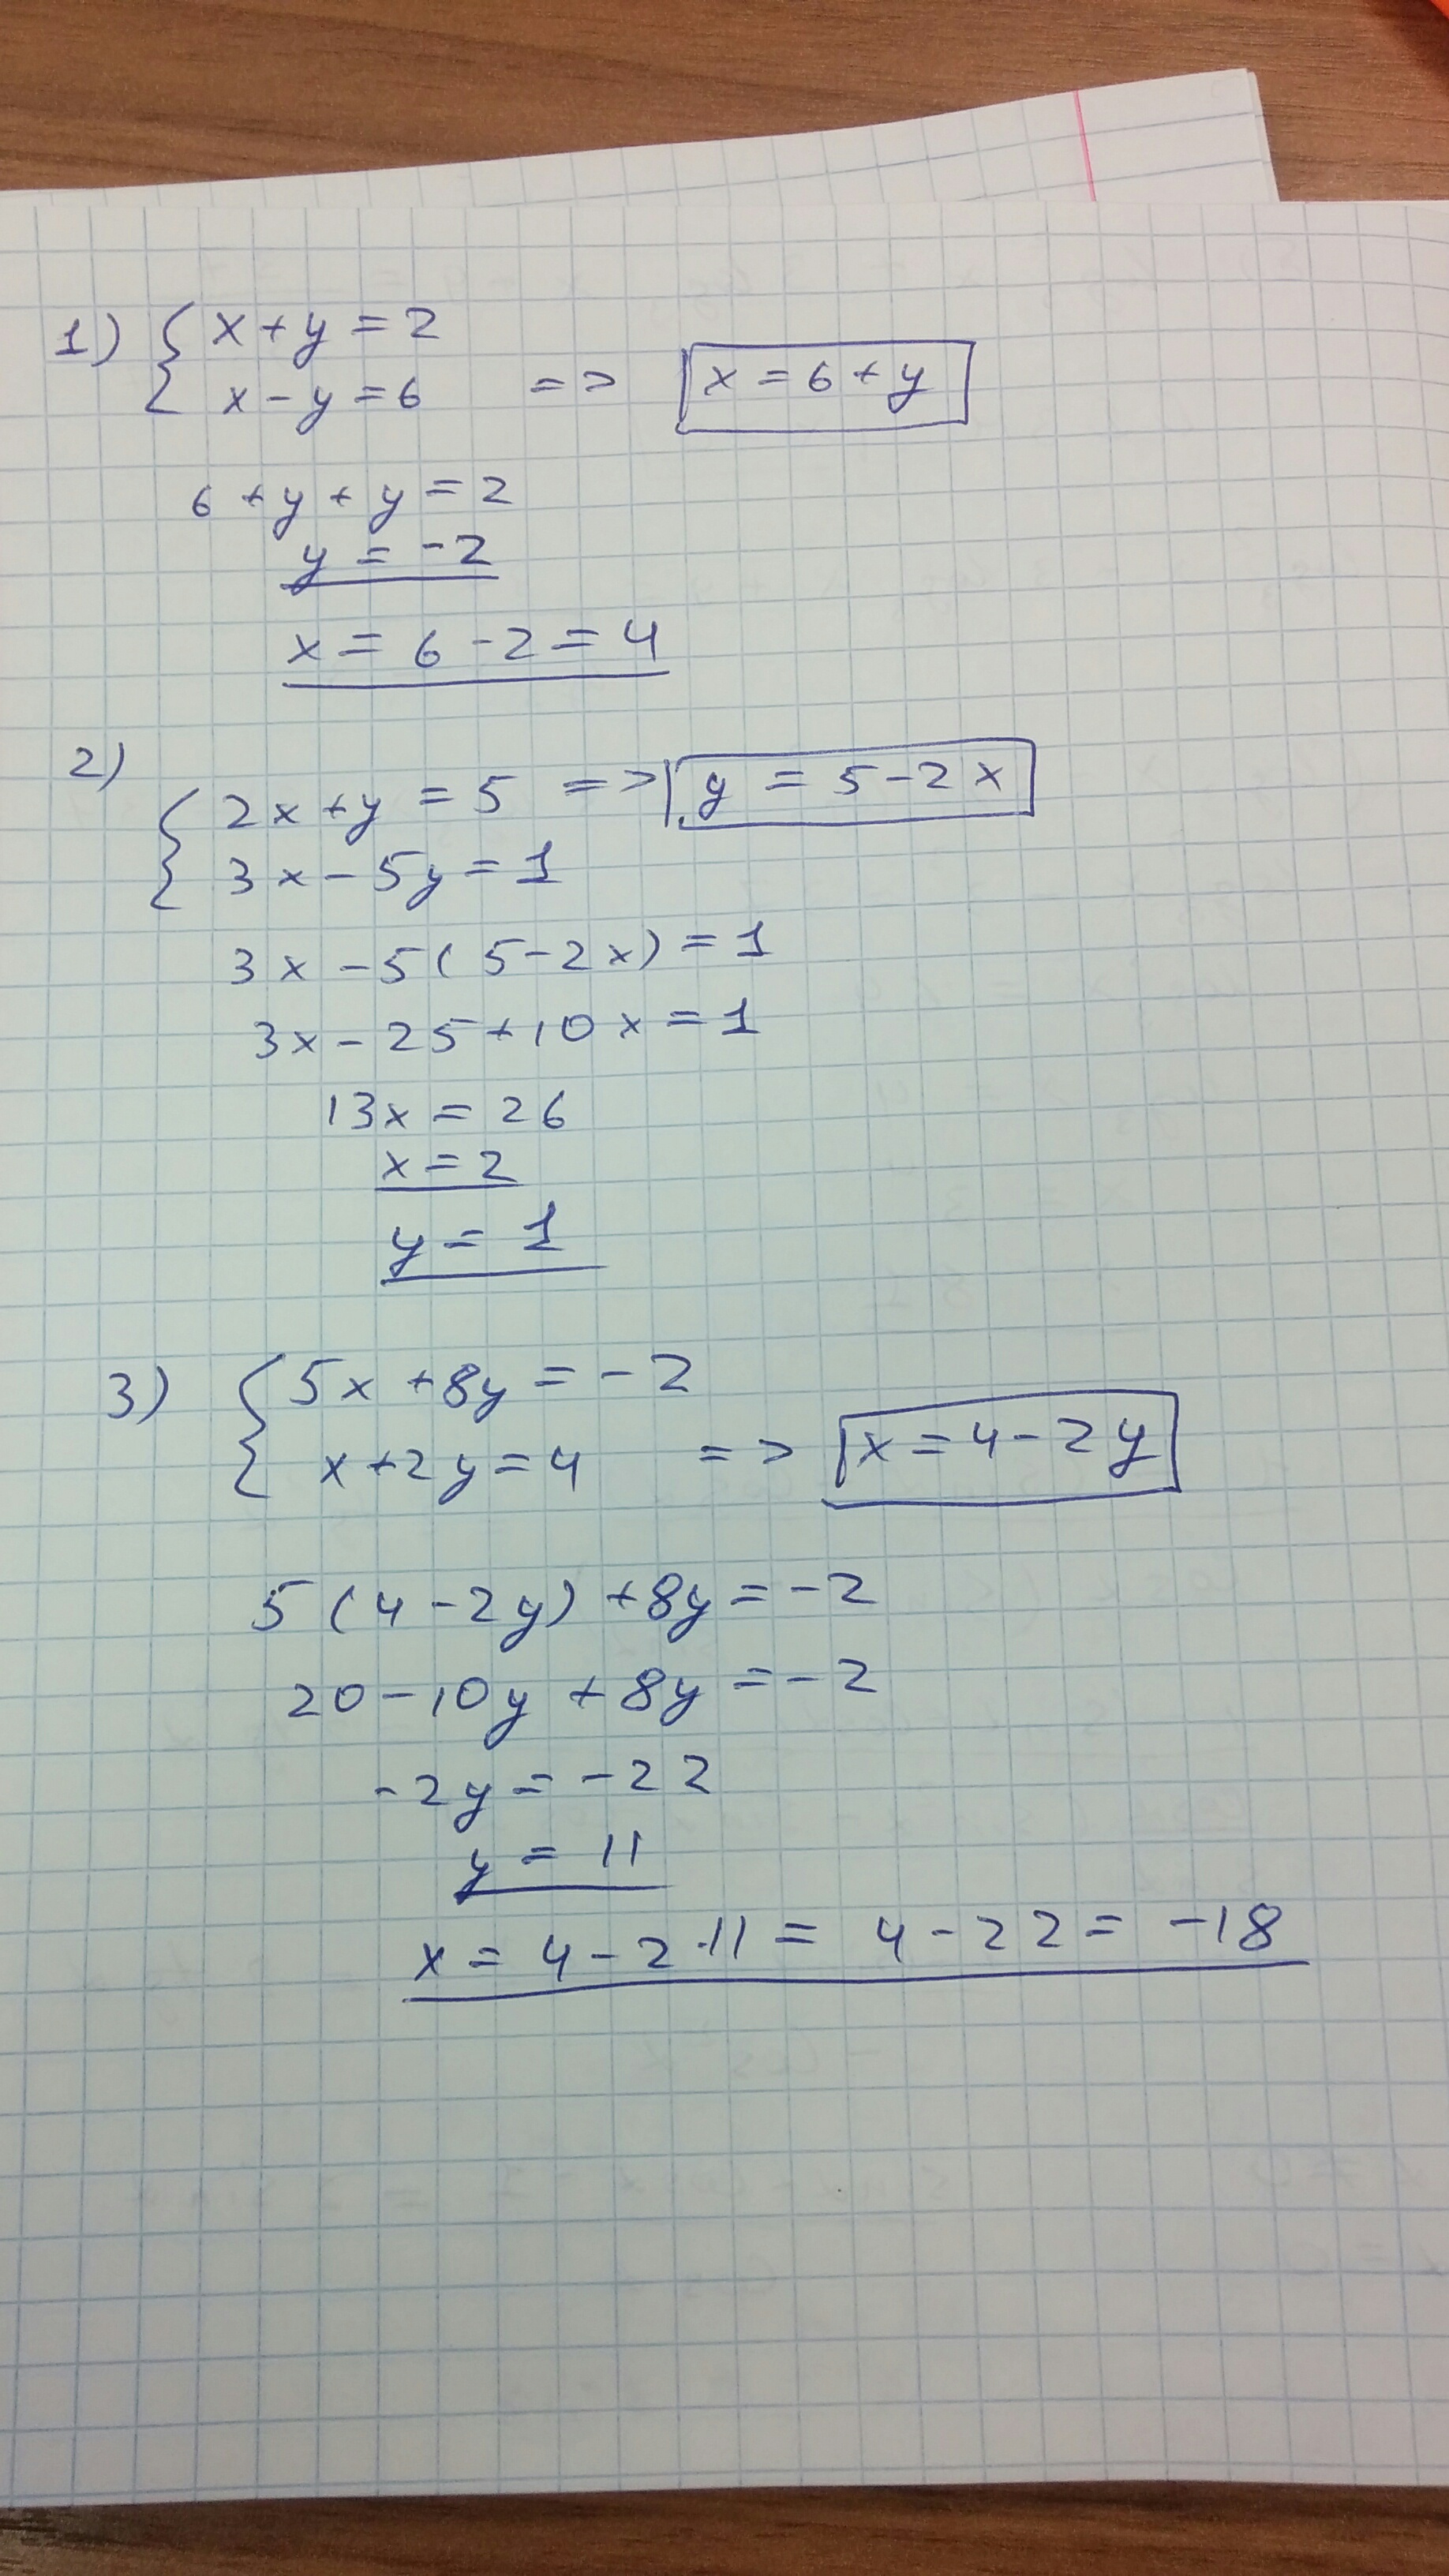 1) { x + y = 2
x - y = 6 => x = 6 + y
6 + y + y = 2
y = -2
x = 6 - 2 = 4
2)
{ 2x + y = 5 => y = 5 - 2x
3x - 5y = 1
3x - 5(5 - 2x) = 1
3x - 25 + 10x = 1
13x = 26
x = 2
y = 1
3) { 5x + 8y = -2
x + 2y = 4 => x = 4 - 2y
5(4 - 2y) + 8y = -2
20 - 10y + 8y = -2
-2y = -22
y = 11
x = 4 - 2 · 11 = 4 - 22 = -18